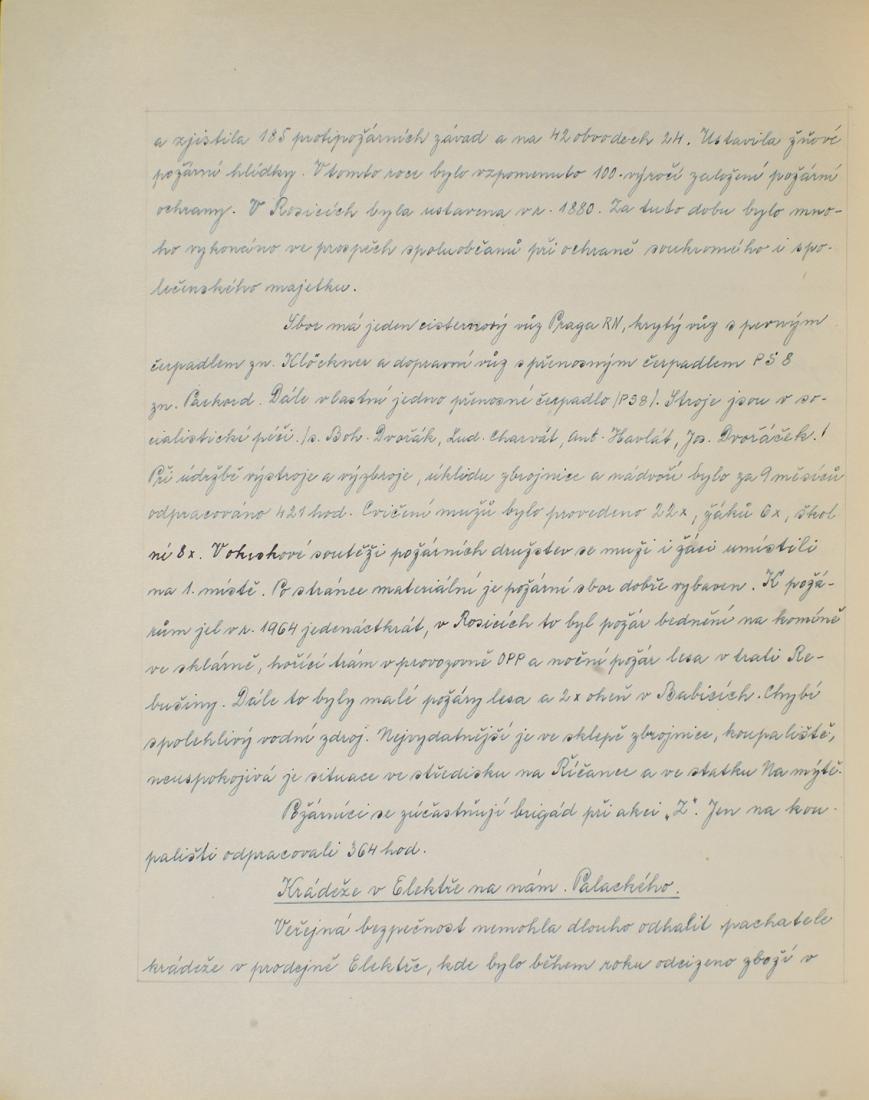 a zjistila 185 protipožárních závad a na 42 obvodech 24. Ustavila žňové
požární hlídky. V tomto roce bylo vzpomenuto 100. výročí založení požární
ochrany. V Rosicích byla ustavena v r. 1880. Za tuto dobu bylo mno-
ho vykonáno ve prospěch spoluobčanů při ochraně soukromého i spo-
lečenského majetku.
Sbor má jeden cisternový vůz Praga RN, krytý vůz s pevným
čerpadlem zn. Klöckner a dopravní vůz s přenosným čerpadlem PS 8
zn. Packard. Dále vlastní jedno přenosné čerpadlo /PS8/. Stroje jsou v so-
cialistické péči. /s. Boh. Dvořák, Lud. Charvát, Ant. Havlát, Jos. Dvořáček./
Při údržbě výstroje a výzbroje, úklidu zbrojnice a nádvoří bylo za 9 měsíců
odpracováno 421 hod. Cvičení mužů bylo provedeno 22x, žáků 6x, škol
ní 8x. V okrskové soutěži požárních družstev se muži i žáci umístili
na 1. místě. Po stránce materiální je požární sbor dobře vybaven. K požá-
rům jel v r. 1964 jedenáctkrát, v Rosicích to byl požár bednění na komíně
ve sklárně, hořící trám v provozovně OPP a noční požár lesa v trati Re-
bušiny. Dále to byly malé požáry lesa a 2x oheň v Babicích. Chybí
spolehlivý vodní zdroj. Nejvydatnější je ve sklepě zbrojnice, koupaliště,
neuspokojivá je situace ve středisku na Říčance a ve statku Na mýtě.
Požárníci se zúčastňují brigád při akci „Z“. Jen na kou-
pališti odpracovali 364 hod.
Krádeže v Elektře na nám. Palackého.
Veřejná bezpečnost nemohla dlouho odhalit pachatele
krádeže v prodejně Elektře, kde bylo během roku odcizeno zboží v